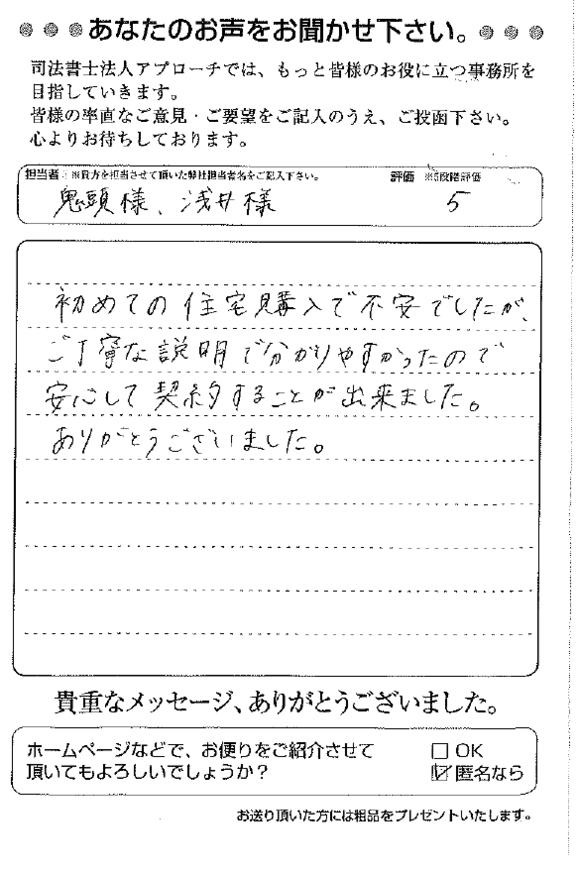 ●●●あなたのお声をお聞かせ下さい。●●●
司法書士法人アプローチでは、もっと皆様のお役に立つ事務所を
目指していきます。
皆様の率直なご意見・ご要望をご記入のうえ、ご投函下さい。
心よりお待ちしております。
担当者 ※貴方を担当させて頂いた弊社担当者名をご記入下さい。 評価 ※5段階評価
鬼頭様、浅井様 5
初めての住宅購入で不安でしたが、
ご丁寧な説明で分かりやすかったので
安心して契約することが出来ました。
ありがとうございました。
貴重なメッセージ、ありがとうございました。
ホームページなどで、お便りをご紹介させて □ OK
頂いてもよろしいでしょうか？ ☑ 匿名なら
お送り頂いた方には粗品をプレゼントいたします。